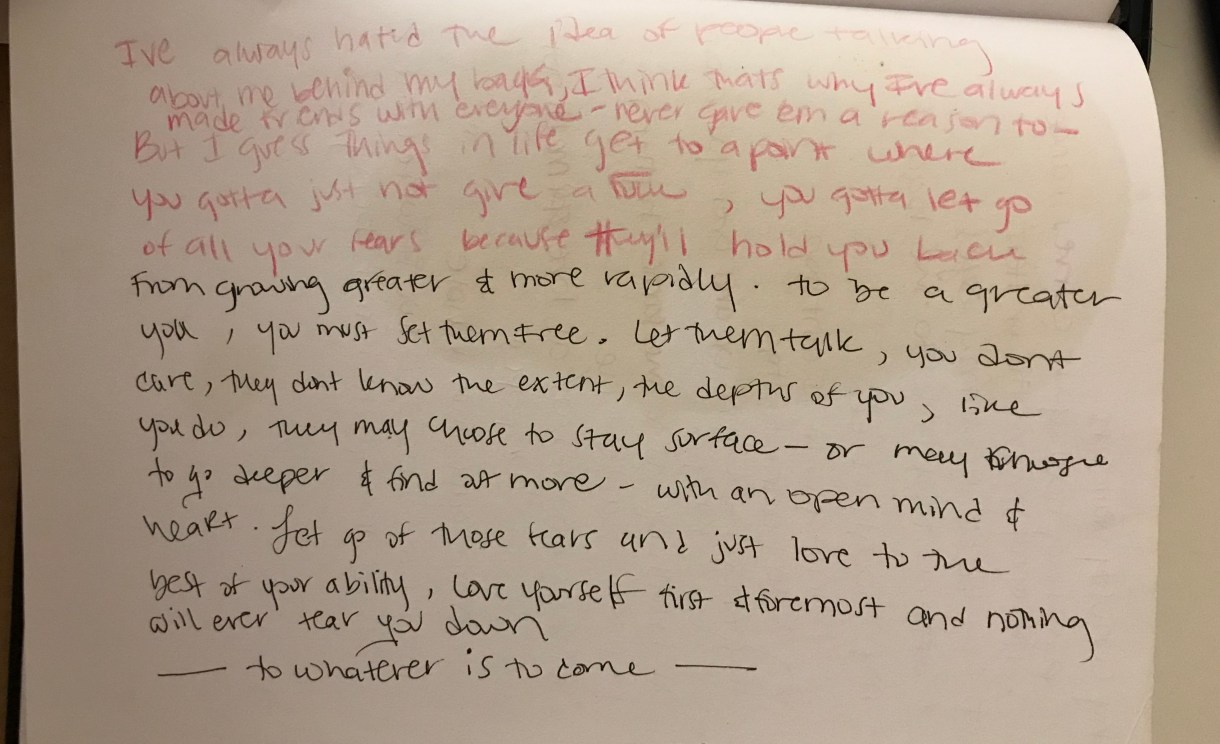 I've always hated the idea of people talking
about me behind my back, I think thats why I've always
made friends with everyone - never gave em a reason to -
But I guess things in life get to a point where
you gotta just not give a fuck, you gotta let go
of all your fears because they'll hold you back
from growing greater & more rapidly. to be a greater
you, you must set them free. Let them talk, you dont
care, they dont know the extent, the depths of you, like
you do, they may choose to stay surface - or may choose
to go deeper & find out more - with an open mind &
heart. Let go of those fears and just love to the
best of your ability, love yourself first & foremost and nothing
will ever tear you down
— to whatever is to come —